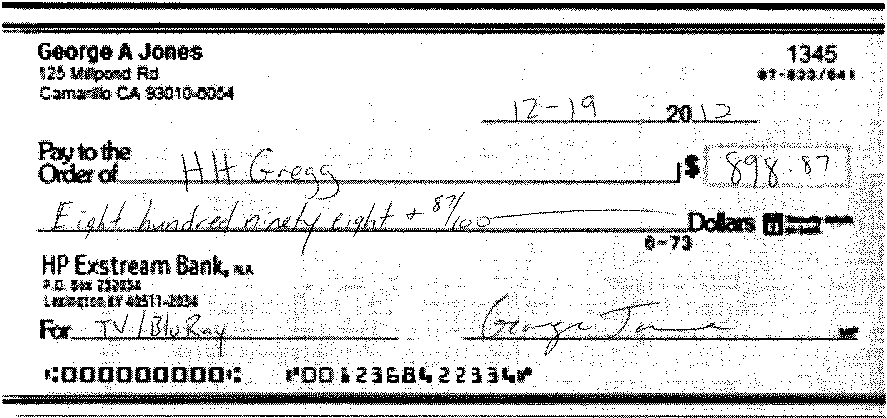 George A Jones 1345
125 Millpond Rd
Camarillo CA 93010-0054
12-19 2012
Pay to the
Order of HH Gregg $ 898.87
Eight hundred ninety eight + 87/100 Dollars
6-73
HP Exstream Bank, N.A.
P.O. Box
Lexington KY 40511-2034
For TV/BluRay George Jones MP
⑆000000000⑆ ⑈0012368422334⑈